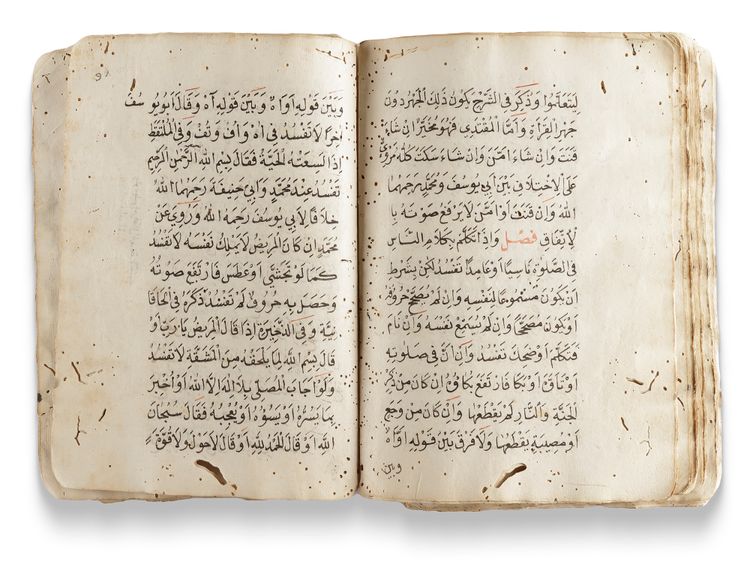 ليتعلموا وذكر في الشرح يكون ذلك الجهر دون
جهر القراءة واما المقتدي فهو مخير ان شاء
قنت وان شاء امن وان شاء سكت كله مروي
على الاختلاف بين ابي يوسف ومحمد رحمهما
الله وان قنت او امن لا يرفع صوته با
لاتفاق فصل واذا تكلم بكلام الناس
في الصلوة ناسيا او عامدا تفسد لكن بشرط
ان يكون مسموعا لنفسه وان لم يصحح حروفه
او يكون مصححا وان لم يسمع نفسه وان نام
فتكلم او ضحك تفسد وان انّ في صلوته
او تاوّه او بكا فارتفع بكاؤه ان كان من ذكر
الجنة والنار لم يقطعها وان كان من وجع
او مصيبة يقطعها ولا فرق بين قوله اواه
وبين
وبين قوله اواه وبين قوله آه وقال ابو يوسف
اخرا لا تفسد في اه واف وتف وفي الملتقط
اذا لسعته الحية فقال بسم الله الرحمن الرحيم
تفسد عند محمد وابي حنيفة رحمهما الله
خلافا لابي يوسف رحمه الله وروي عن
محمد ان كان المريض لا يملك نفسه لا تفسد
كما لو تجشى او عطس فارتفع صوته
وحصل به حروف لم تفسد ذكره في الخاقا
نية وفي الذخيرة اذا قال المريض يا رب او
قال بسم الله لما يلحقه من المشقة لا تفسد
ولو اجاب المصلي بلا اله الا الله او اخبر
بما يسره او يسؤه او يعجبه فقال سبحان
الله او قال الحمد لله او قال لا حول ولا قوة